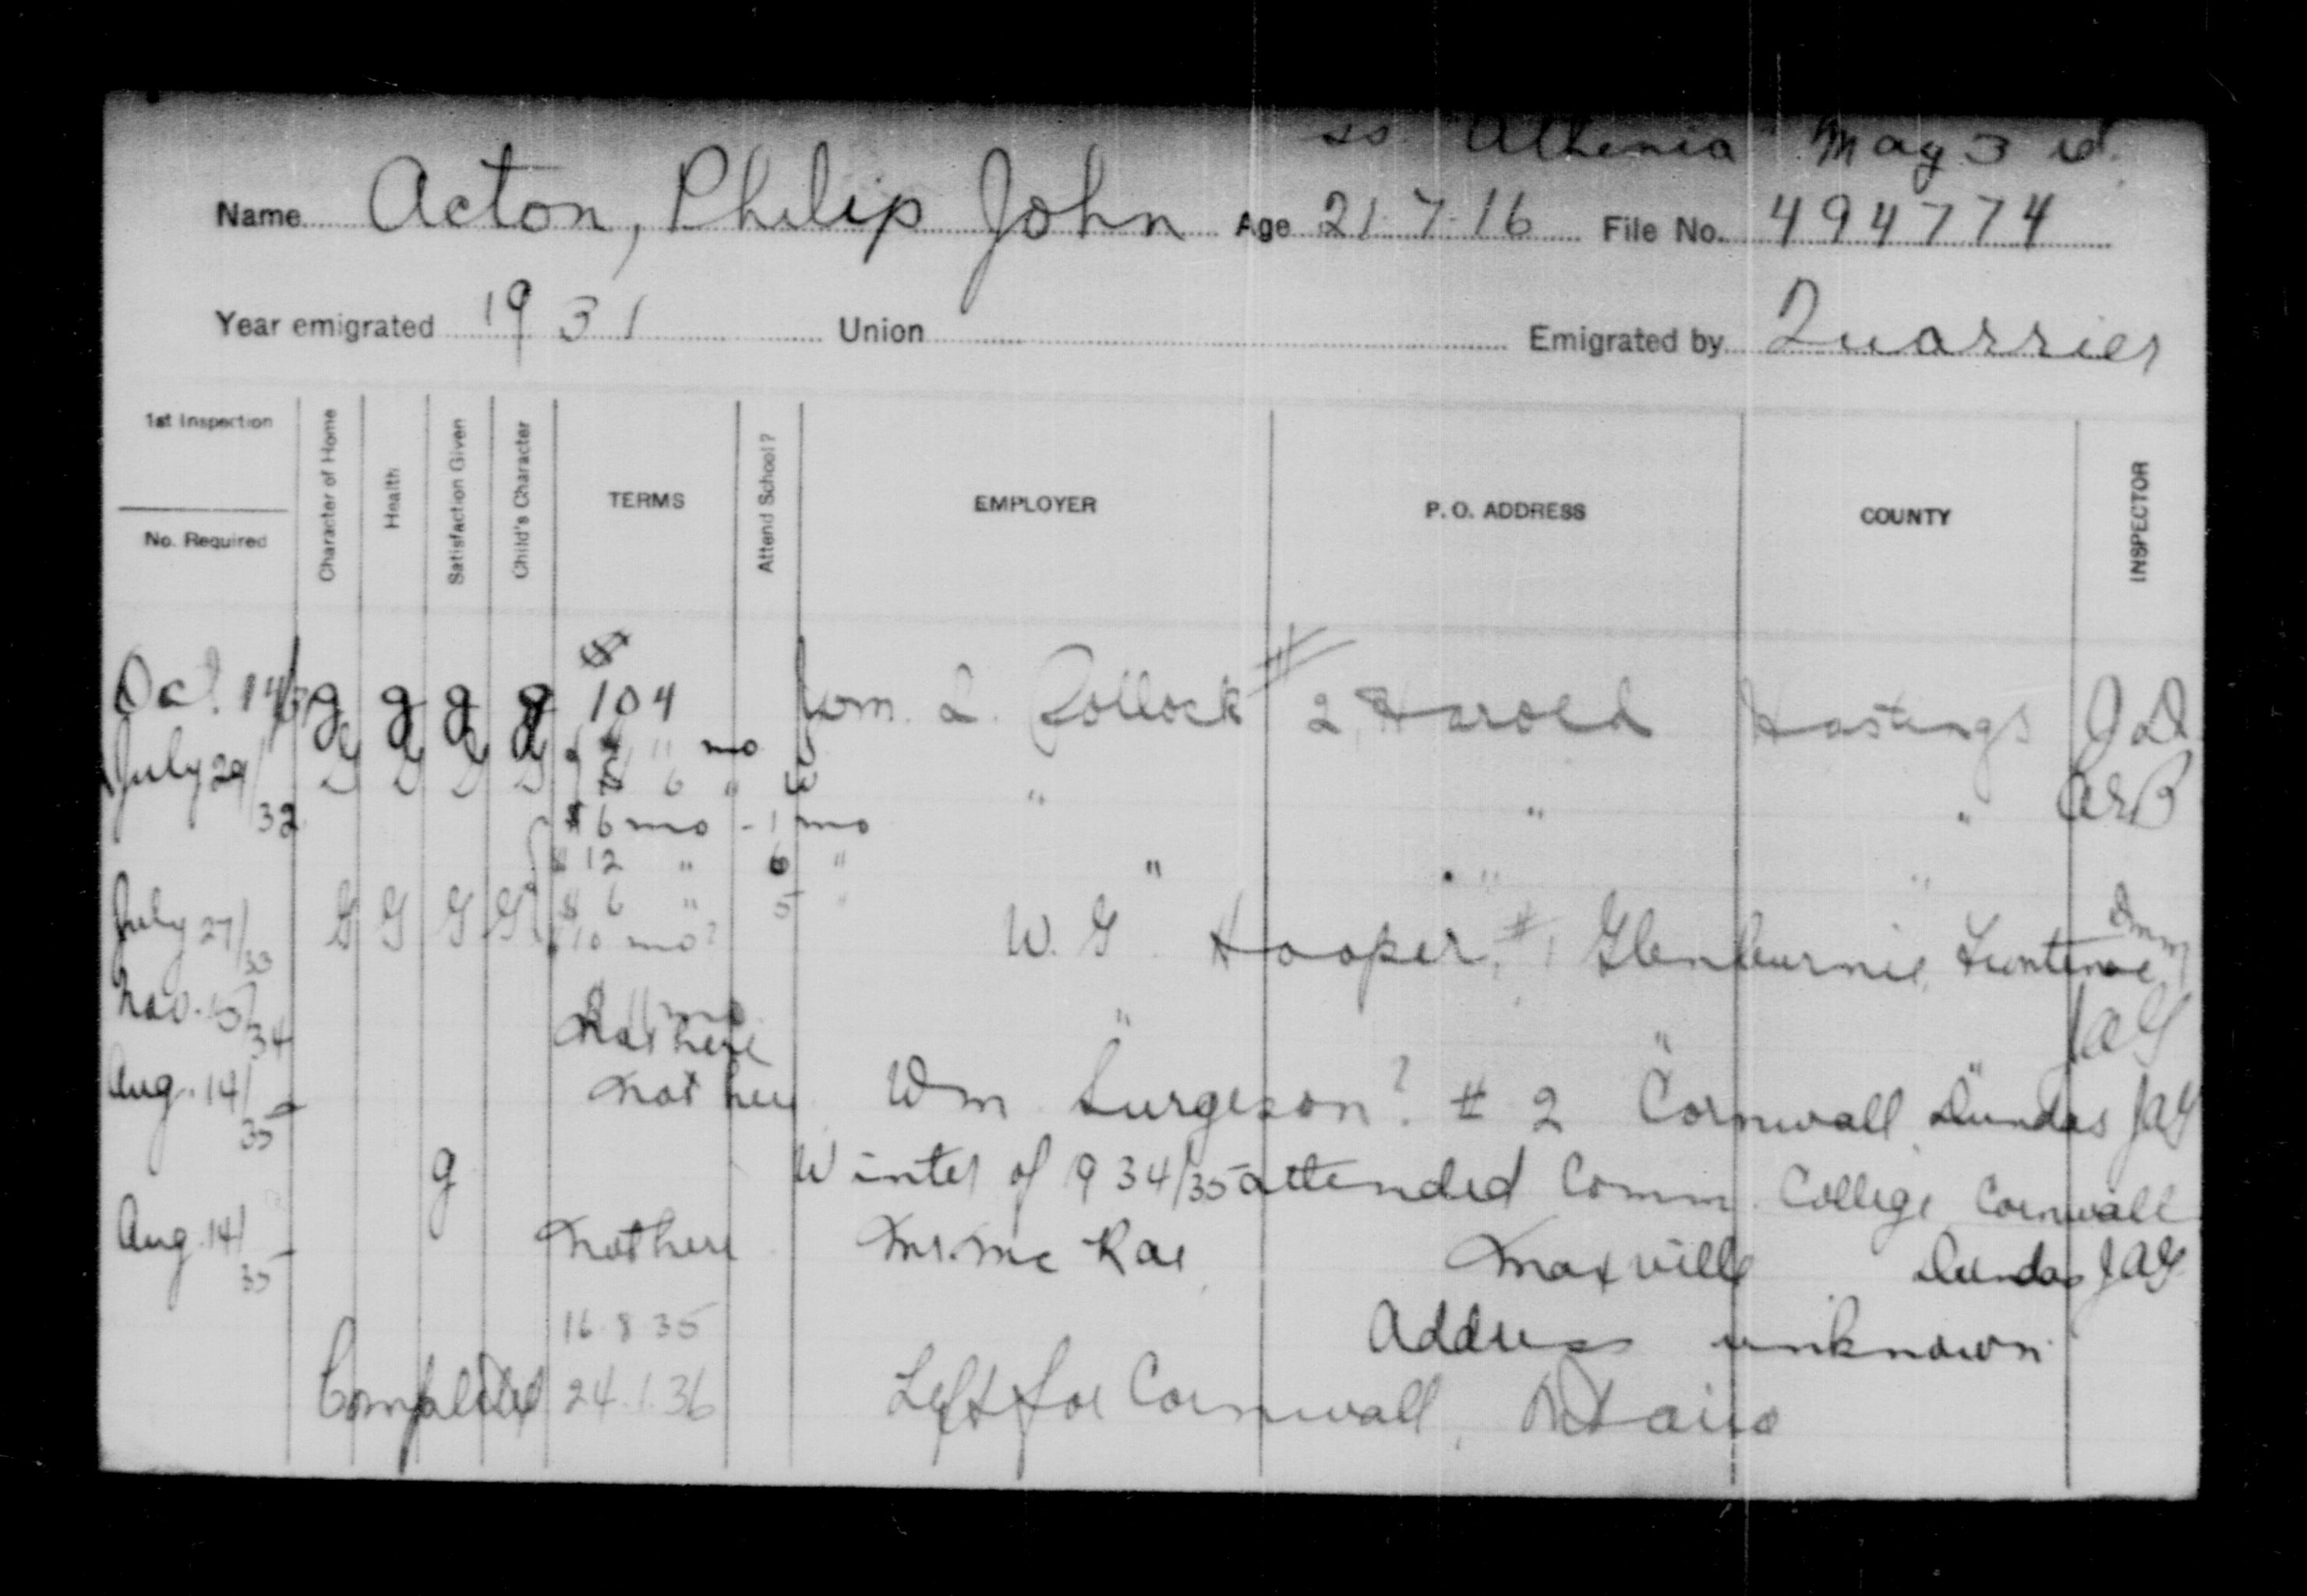 ss Athenia May 3 rd.
Name Acton, Philip John Age 21.7.16 File No. 494774
Year emigrated 1931 Union Emigrated by Quarrier
1st Inspection
No. Required
Character of Home
Health
Satisfaction Given
Child's Character
TERMS
Attend School?
EMPLOYER
P. O. ADDRESS
COUNTY
INSPECTOR
$
Oct. 14/31 g g g g 104 Wm. L. Pollock #2, Harold Hastings JD
" mo
July 29/32 G G G G 6 " W " " " ARB
$6 mo - 1 mo
$12 " 6 " " " "
$6 " 5 "
July 27/33 G G G G $10 mo? W. G. Hooper, #1 Glenburnie, Funtenac
Nov. 15/34 Not here " " " JAG
Aug. 14/35 - Not here Wm Surgeson? #2 Cornwall, Dundas JAG
g Winter of 934/35 attended Comm. College, Cornwall
Aug. 14/35 - Not here Mr. Mc Rae, Maxville Dundas JAG
16.8.35 Address unknown.
Completed 24.1.36 Left for Cornwall, Ontario